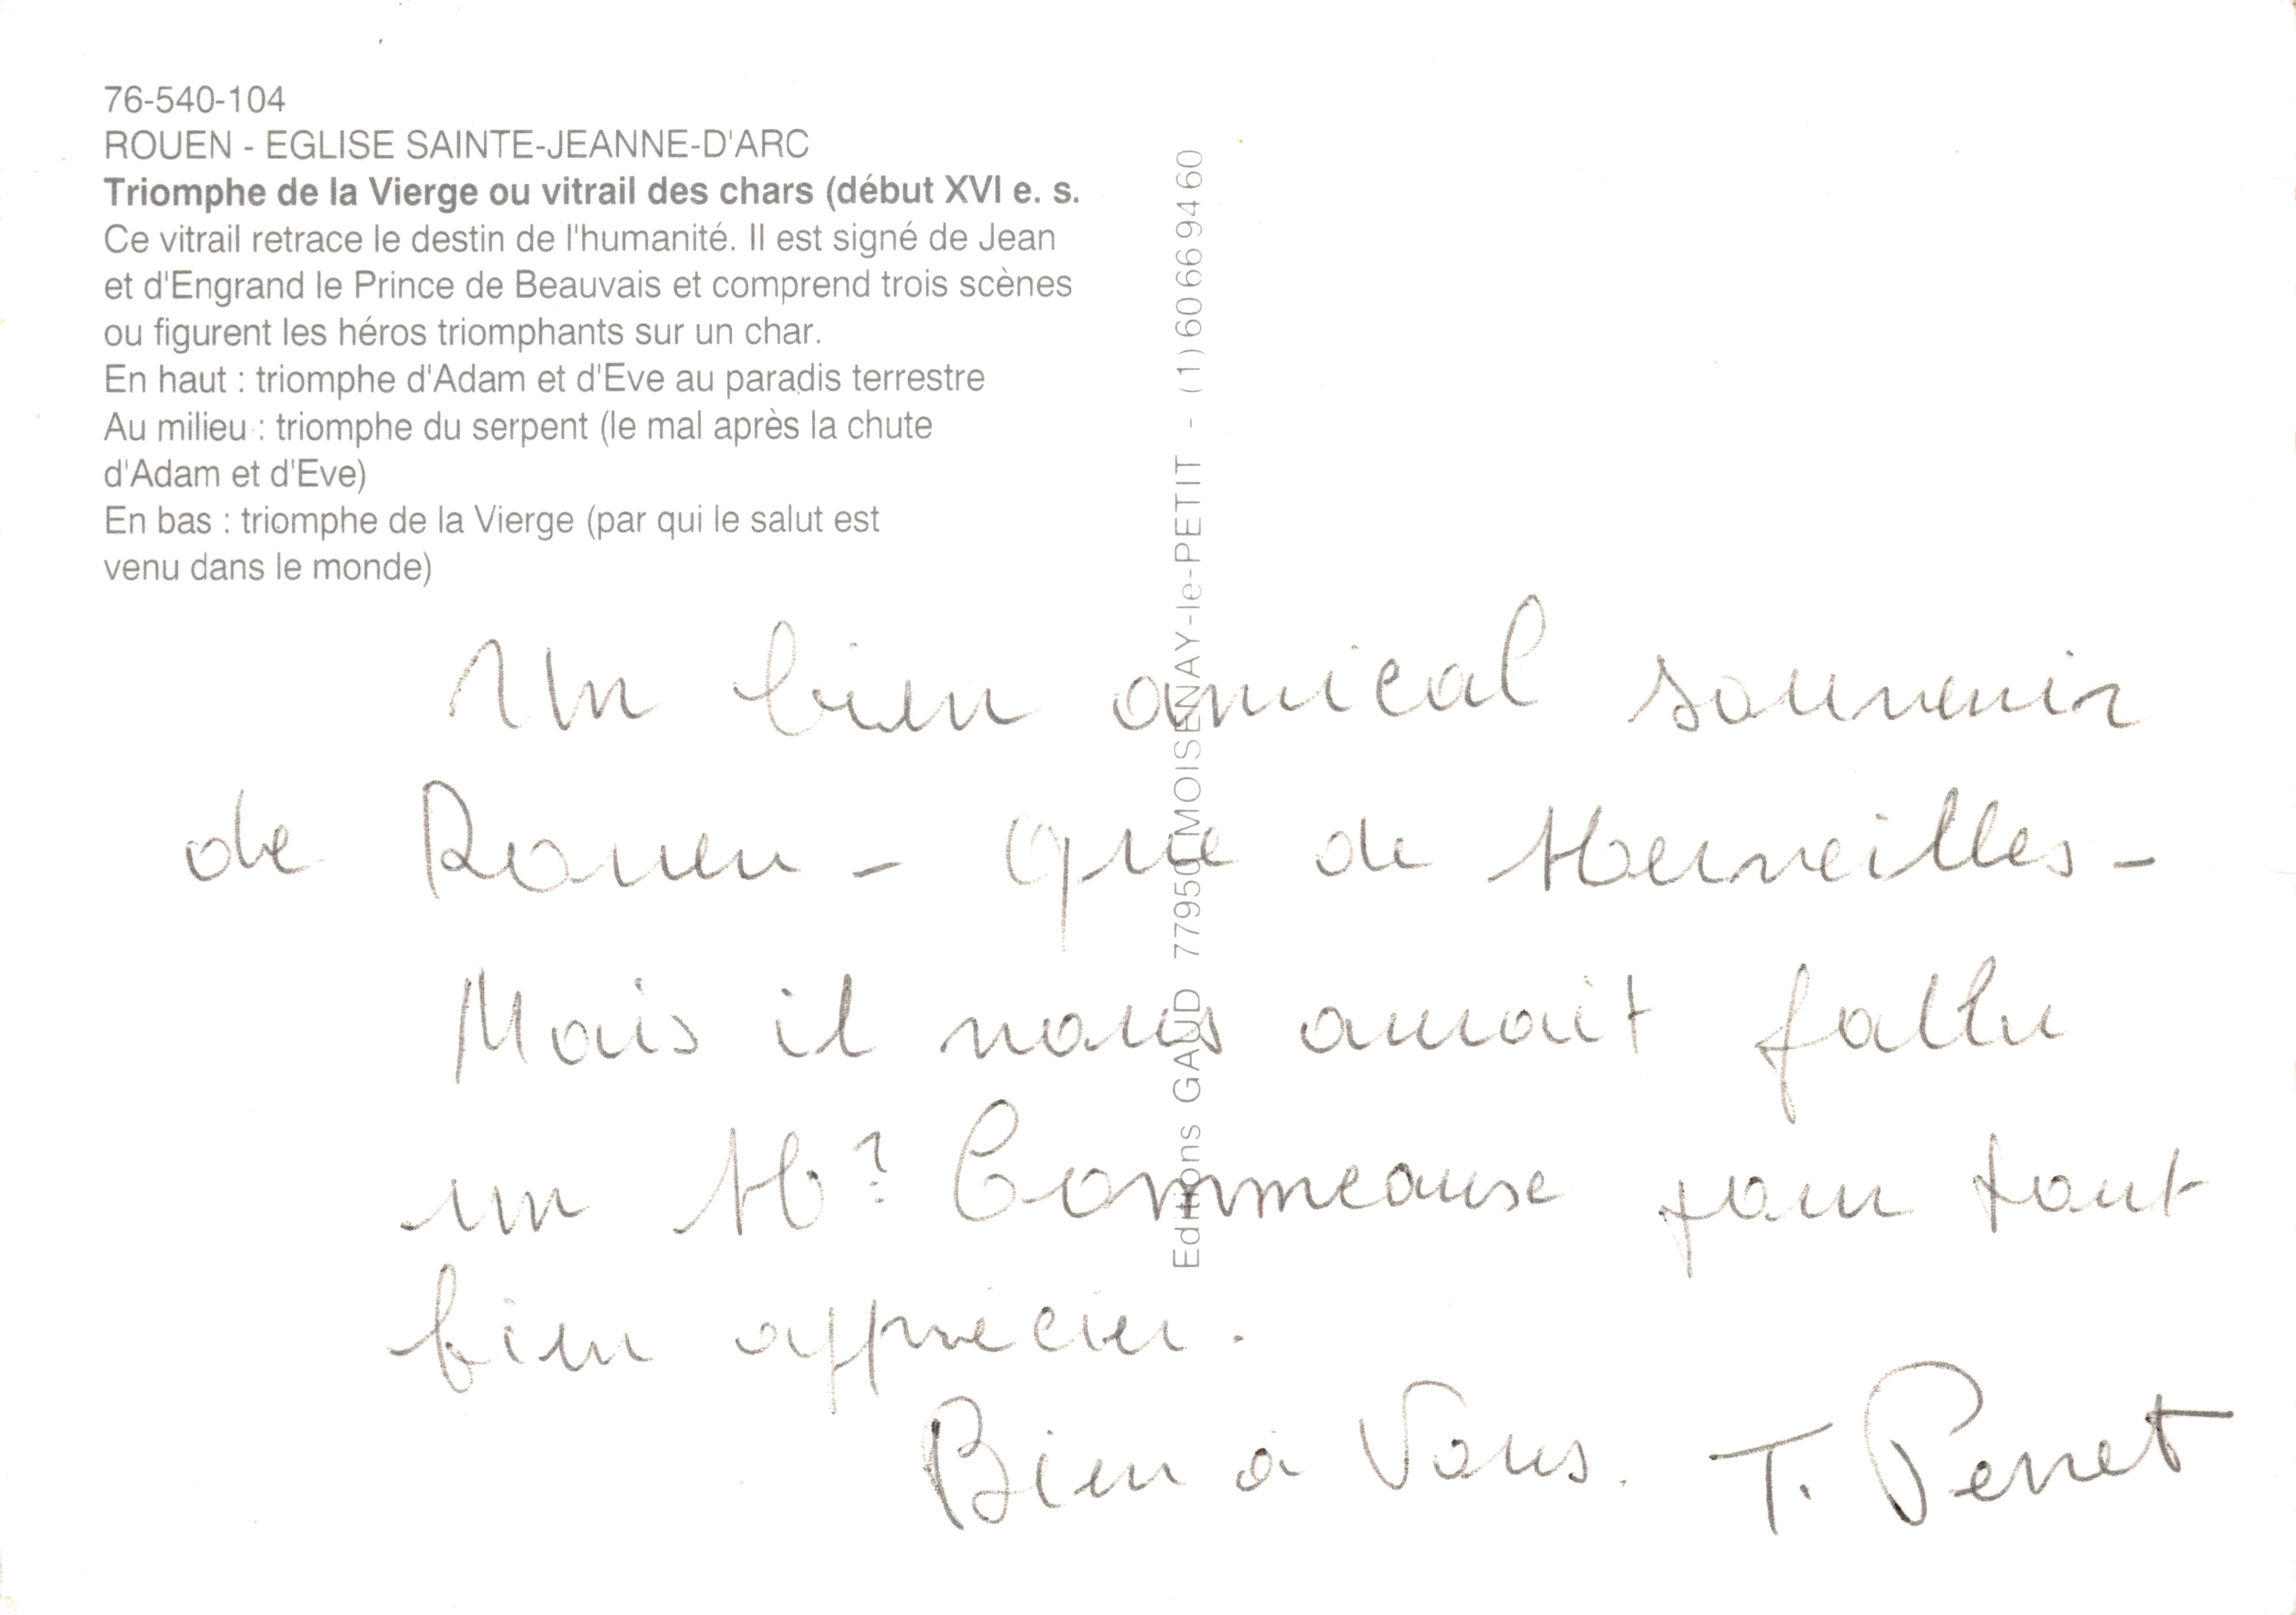 76-540-104
ROUEN - EGLISE SAINTE-JEANNE-D'ARC
Triomphe de la Vierge ou vitrail des chars (début XVI e. s.
Ce vitrail retrace le destin de l'humanité. Il est signé de Jean
et d'Engrand le Prince de Beauvais et comprend trois scènes
ou figurent les héros triomphants sur un char.
En haut : triomphe d'Adam et d'Eve au paradis terrestre
Au milieu : triomphe du serpent (le mal après la chute
d'Adam et d'Eve)
En bas : triomphe de la Vierge (par qui le salut est
venu dans le monde)
Editions GAUD 77950 MOISENAY-le-PETIT - (1) 60 66 94 60
Un bien amical souvenir
de Rouen - Que de Merveilles -
Mais il nous aurait fallu
un Mr Commeause pour tout
bien apprécier.
Bien à Vous. T. Perret